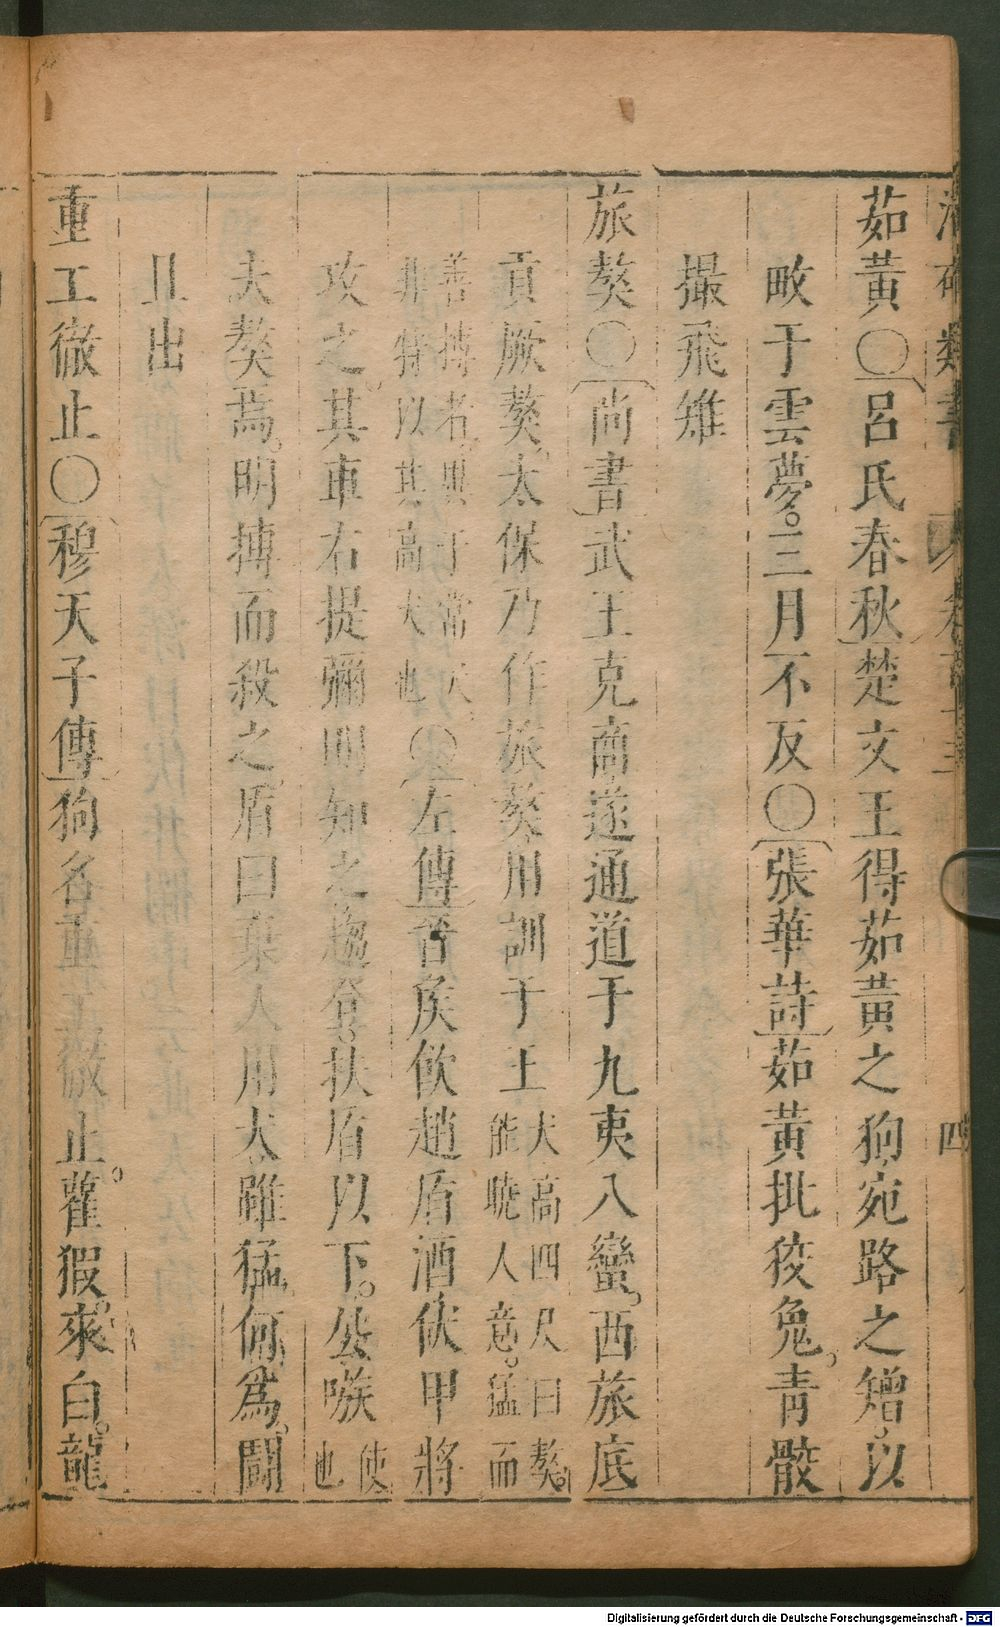 類書
四
茹黃○呂氏春秋楚文王得茹黃之狗宛路之矰以
畋于雲夢三月不反○張華詩茹黃批狡兔青骹
撮飛雉
旅獒○尚書武王克商遂通道于九夷八蠻西旅底
貢厥獒太保乃作旅獒用訓于王犬高四尺曰獒能曉人意猛而
善搏者異于常犬非特以其高大也○左傳晉侯飲趙盾酒伏甲將
攻之其車右提彌明知之趨登扶盾以下公嗾使也
夫獒焉明搏而殺之盾曰棄人用犬雖猛何為鬪
且出
重工徹止○穆天子傳狗名重工徹止雚猳來白龍
Digitalisierung gefördert durch die Deutsche Forschungsgemeinschaft - DFG